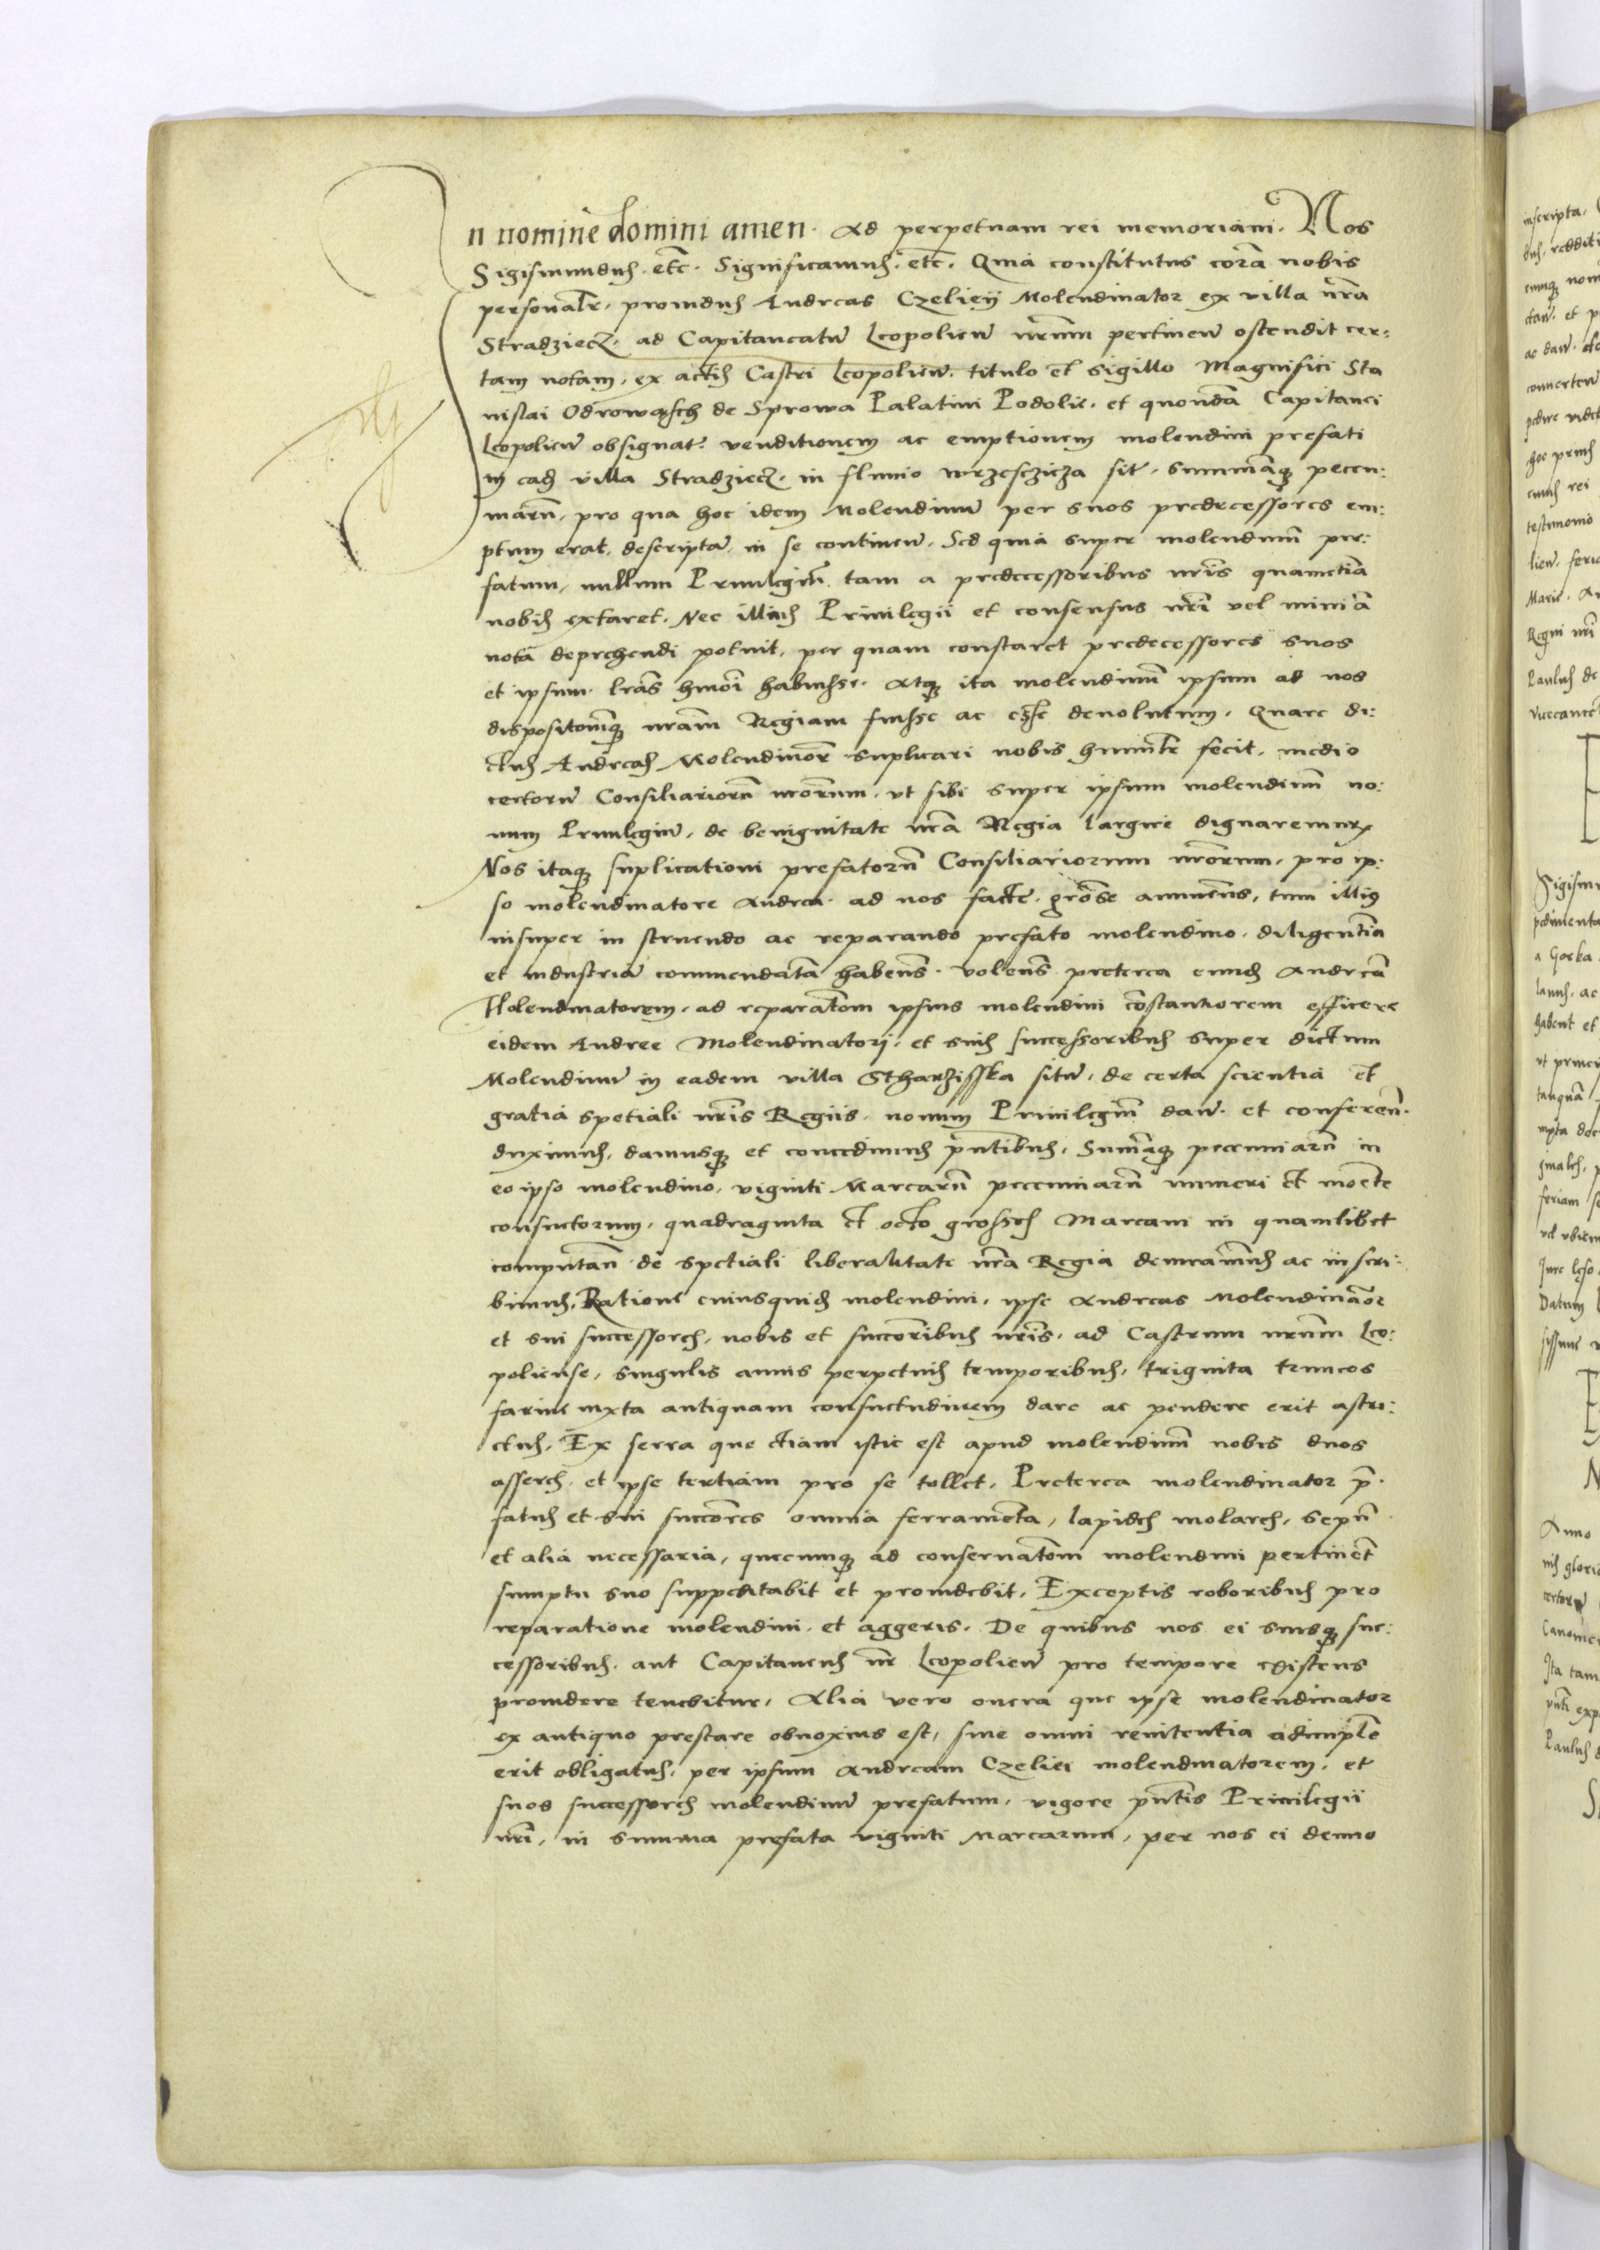 In nomine domini amen. Ad perpetuam rei memoriam. Nos
Sigismundus. etc. Significamus. etc. Quia constitutus corã nobis
personalr. prouidus Andreas Czelieij Molendinator ex villa nrã
Stradziecz. ad Capitaneatũ Leopolien̄ nrũm pertinen̄ ostendit cer:
tam notam, ex actis Castri Leopolien̄. titulo et sigillo Magnifici Sta
nislai Odrowasch de Sprowa Palatini Podolie. et quondã Capitanei
Leopolien̄ obsignat. venditionem ac emptionem molendini prefati
in eađ villa Stradziecz. in fluuio wrzesczicza sit. summãq3 pecu:
niarũ, pro qua hoc idem Molendinũ per suos predecessores em:
ptum erat, descriptã, in se continen̄. Sed quia super molendinũ pre:
fatum, nullum Priuilegiũ tam a predecessoribus nrĩs quametiã
nobis extaret. Nec illius Priuilegii et consensus nrĩ vel minĩa
nota deprehendi potuit, per quam constaret predecessores suos
et ipsum lrãs hmõi habuisse. Atq3 ita molendinũ ipsum ad nos
dispositonẽq3 nrãm Regiam fuisse ac esse deuolutum. Quare di:
ctus Andreas Molendinõr suplicari nobis humilr fecit. medio
certorũ Consiliariorũ nrõrum. vt sibi super ipsum molendinũ no:
uum Priuilegiũ, de benignitate nrã Regia largire dignaremur
Nos itaq3 suplicationi prefatorũ Consiliariorum nrõrum, pro ip:
so molendinatore Andrea. ad nos facte. grõse annuen̄s, tum illius
insuper in struendo ac reparando prefato molendino. diligentiã
et industriã commendatã haben̄s. volen̄s preterea eunđ Andreã
Molendinatorem. ad reparatõm ipsius molendini cõstantiorem efficere
eidem Andree Molendinatorj. et suis successoribus super dictum
Molendinũ in eadem villa Stharzisska sitũ, de certa scientia et
gratia spetiali nrĩs Regiis. nouum Priuilegiũ dan̄. et conferen̄.
duximus. damusq3 et concedimus pñtibus. Summãq3 pecuniarũ in
eo ipso molendino. viginti Marcarũ pecuniarũ numeri et monẽte
consuetorum, quadraginta et octo grosses Marcam in quamlibet
computan̄ de spetiali liberalitate nrã Regia demandamus ac inscri:
bimus. Ratione cuiusquiđ molendini, ipse Andreas Molendinãor
et sui successores, nobis et succõribus nrĩs. ad Castrum nrũm Leo:
poliense, singulis annis perpetuis temporibus, triginta truncos
farine iuxta antiquam consuetudinem dare ac pendere erit astri:
ctus. Ex serra que etiam istic est apud molendinũ nobis duos
asseres. et ipse tertiam pro se tollet. Preterea molendinator p̄.
fatus et sui succõres omnia ferramẽta, lapides molares, sepũ
et alia necessaria, quecunq3 ad conseruatõm molendini pertinẽt
sumptu suo suppeditabit et prouidebit. Exceptis roboribus pro
reparatione molendini. et aggeris. De quibus nos ei suisq3 suc:
cessoribus. aut Capitaneus nr̃ Leopolien̄ pro tempore existens
prouidere tenebitur. Alia vero onera que ipse molendinator
ex antiquo prestare obnoxius est, sine omni renitentia adimplẽ
erit obligatus. per ipsum Andream Czeliei molendinatorem. et
suos successores molendinũ prefatum. vigore pñtis Priuilegii
nrĩ, in summa prefata viginti Marcarum, per nos ei denuo